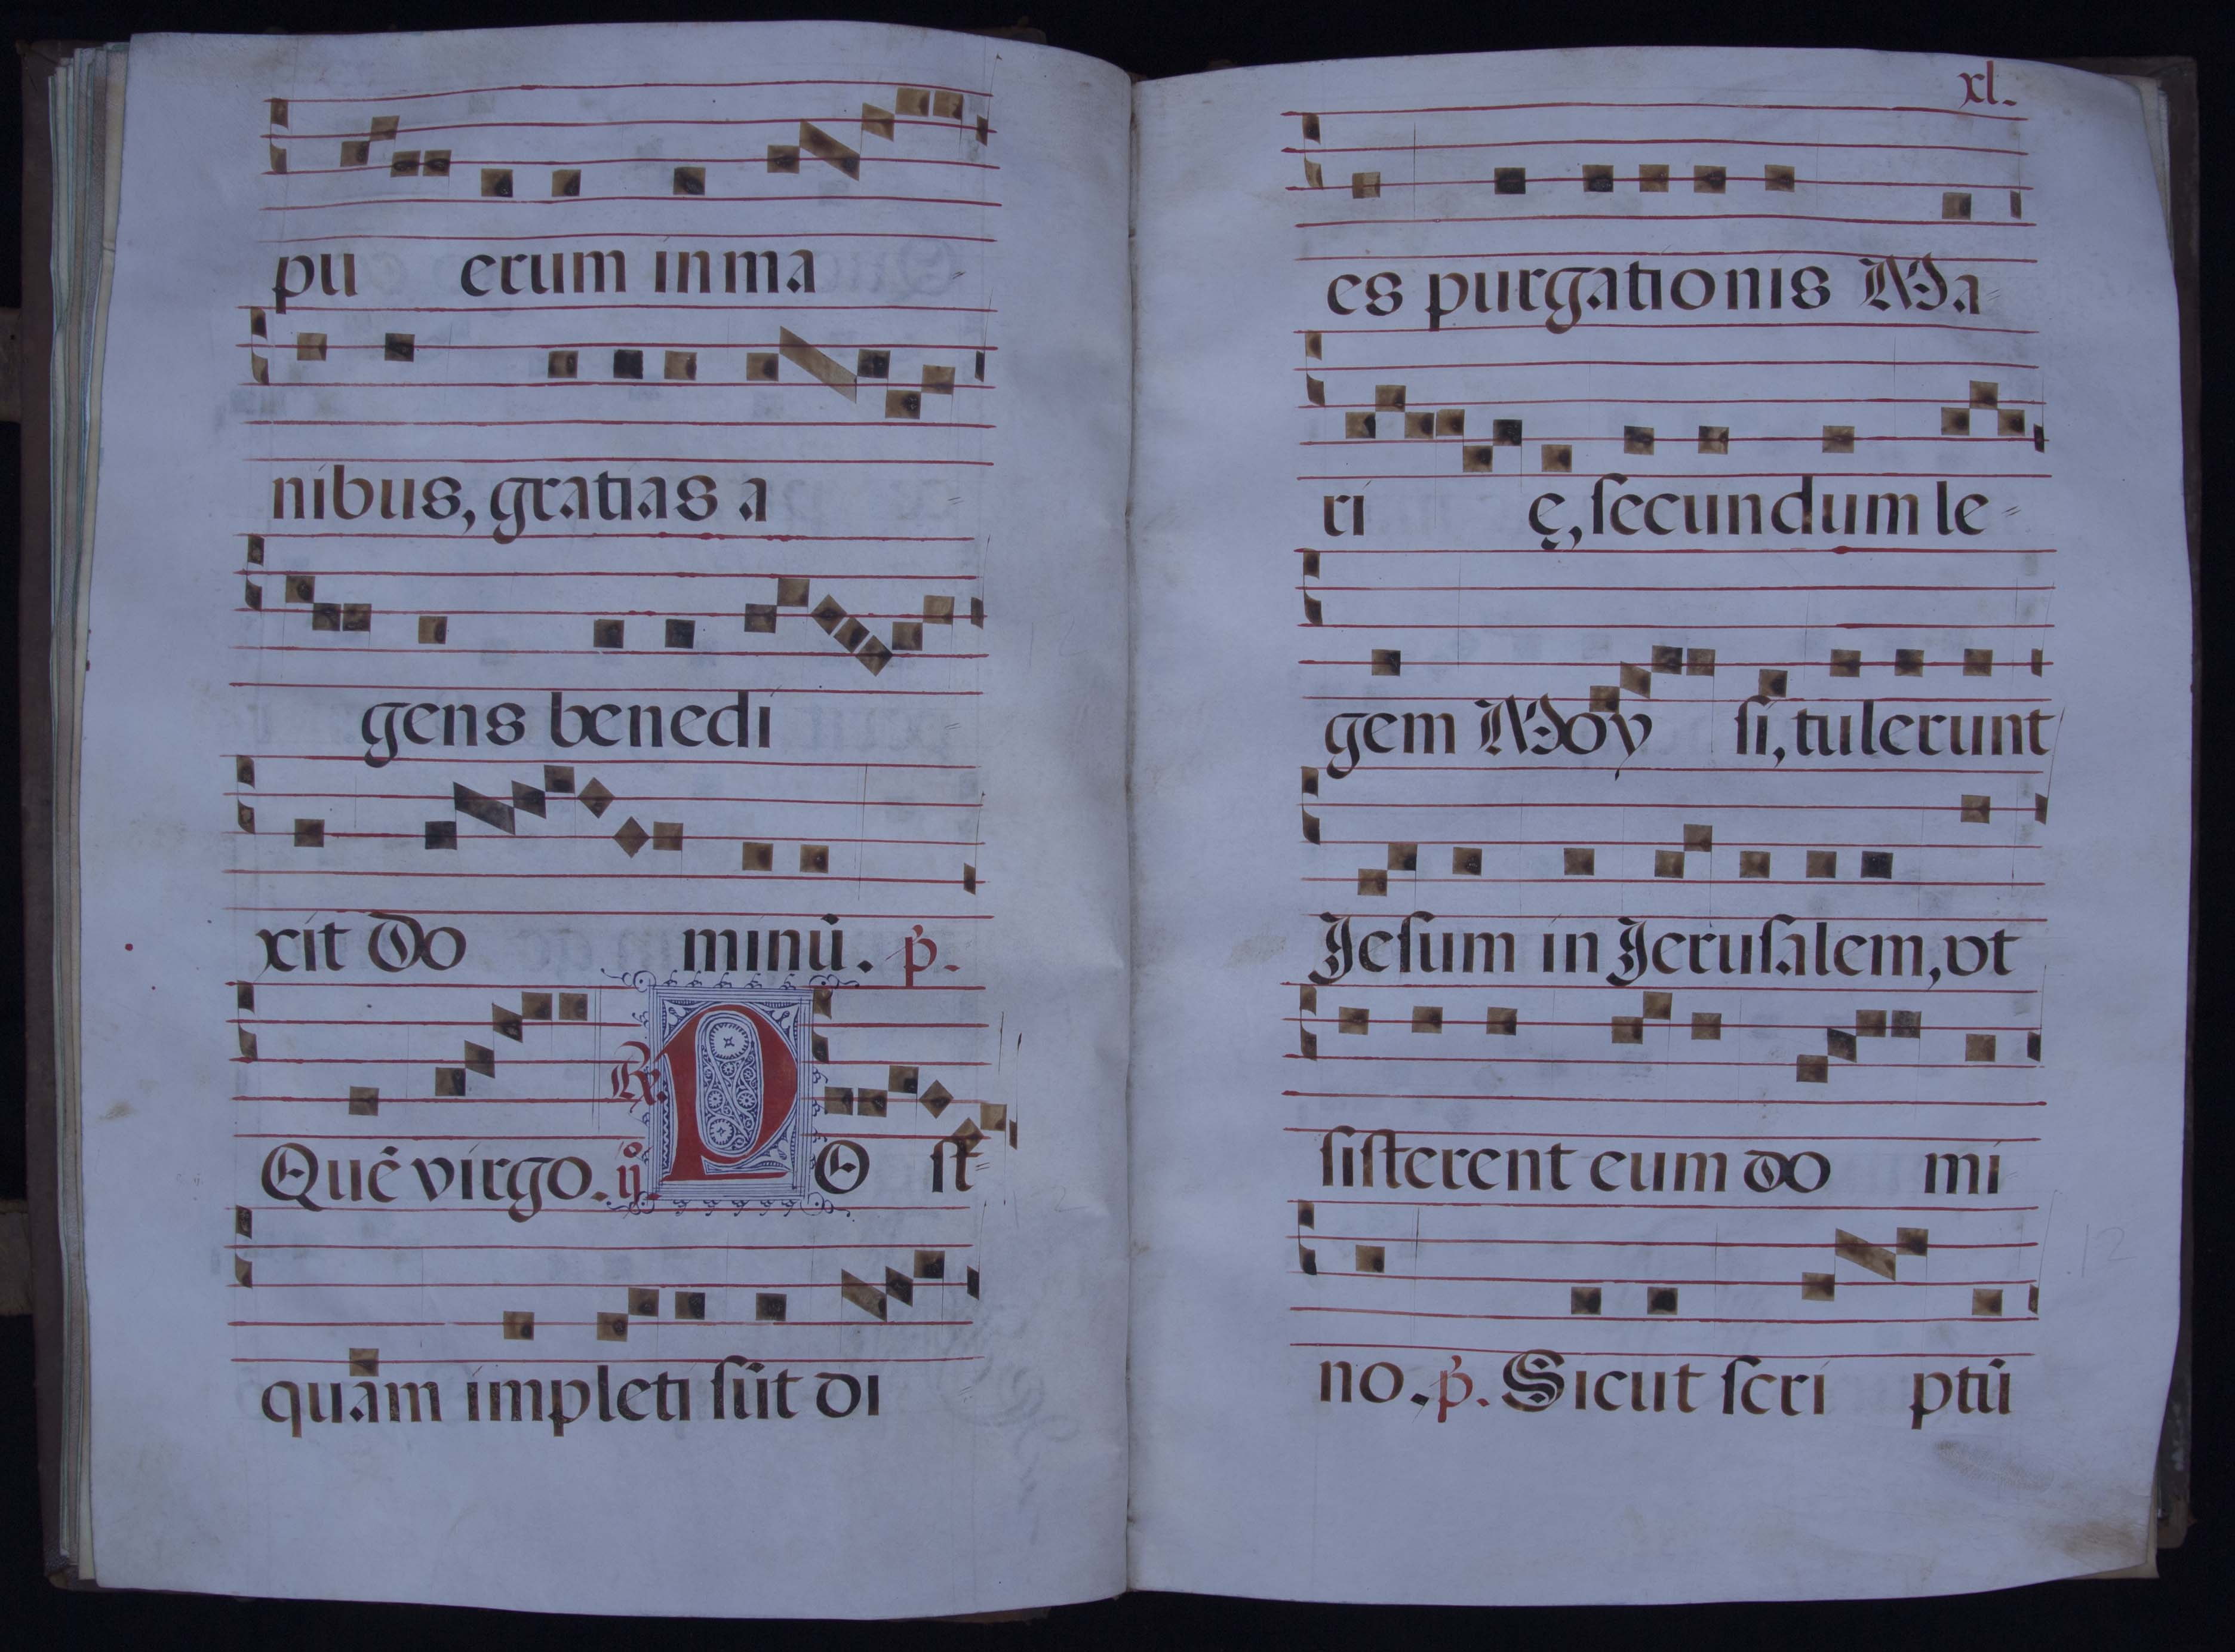 pu erum in ma
nibus, gratias a
gens benedi
xit Do minū. p̄.
Quē virgo. ij. R̄. PO st
quam impleti sūt di
xl.
es purgationis Ma
ri ę, ſecundum le
gem Moy ſi, tulerunt
Jeſum in Jeruſalem, vt
ſiſterent eum do mi
no. p̄. Sicut ſcri ptū